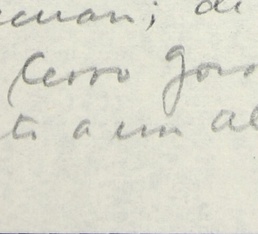 ecuan; de
Cerro Gor
te a un al